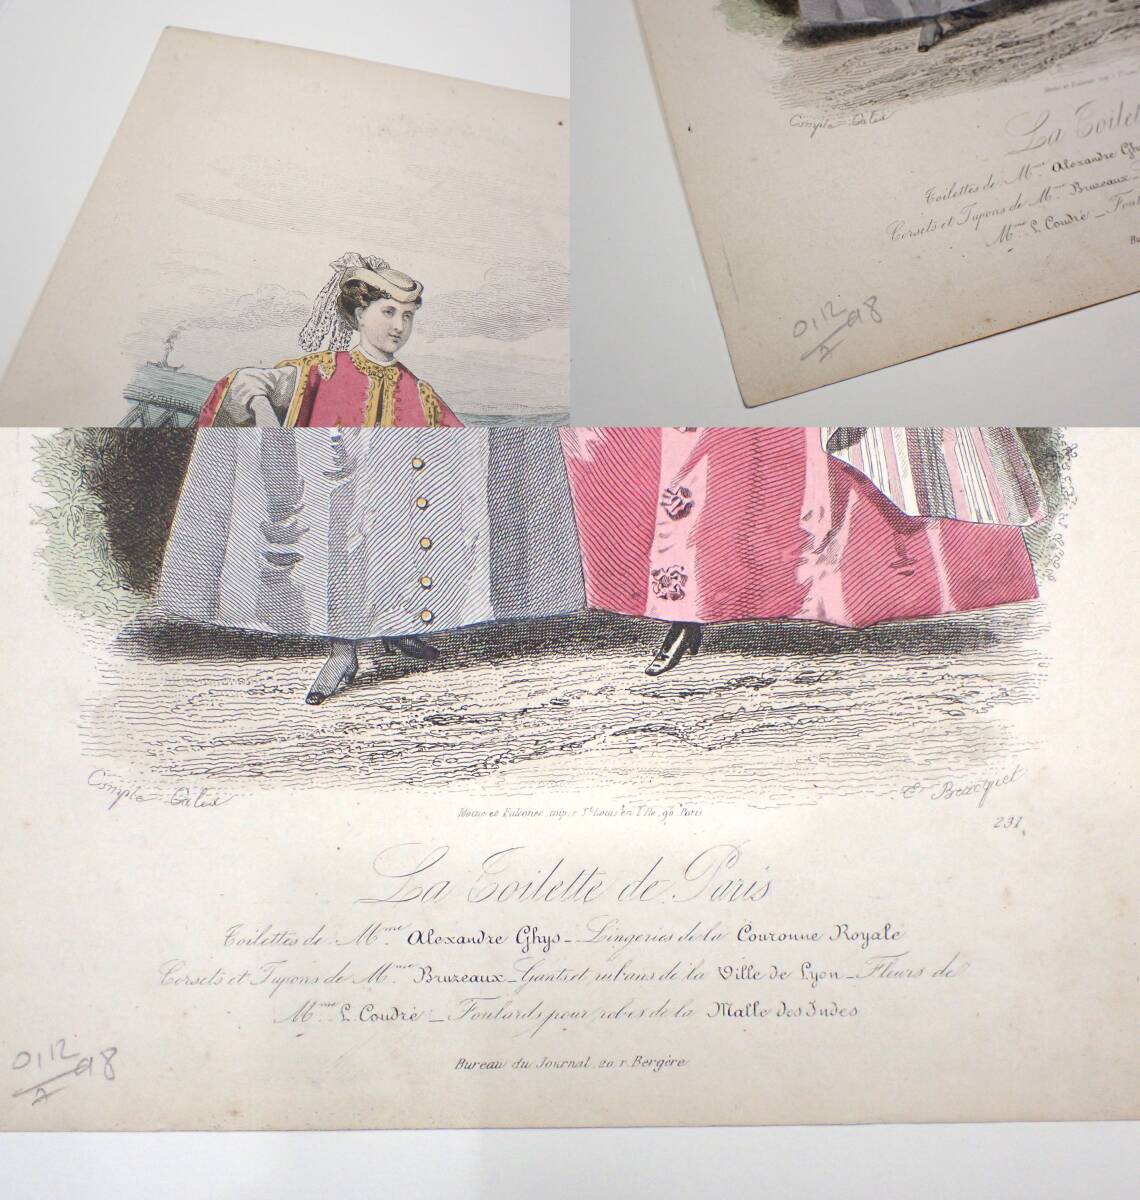 Compte Calix
La Toilet
Toilettes de Mme Alexandre Ghy
Corsets et Jupons de Mme Bruzeaux_
Mme L. Coudré _ Foul
Bu
0,12/7 98
Compte Calix
E. Bracquet
Moine et Falconer imp. r. St. Louis en l'Ile, 90, Paris
231
La Toilette de Paris
Toilettes de Mme Alexandre Ghys_ Lingeries de la Couronne Royale
Corsets et Jupons de Mme Bruzeaux_ Gants et rubans de la Ville de Lyon_ Fleurs de
Mme L. Coudré _ Foulards pour robes de la Malle des Indes
Bureau du Journal, 20, r. Bergère
0,12/7 98